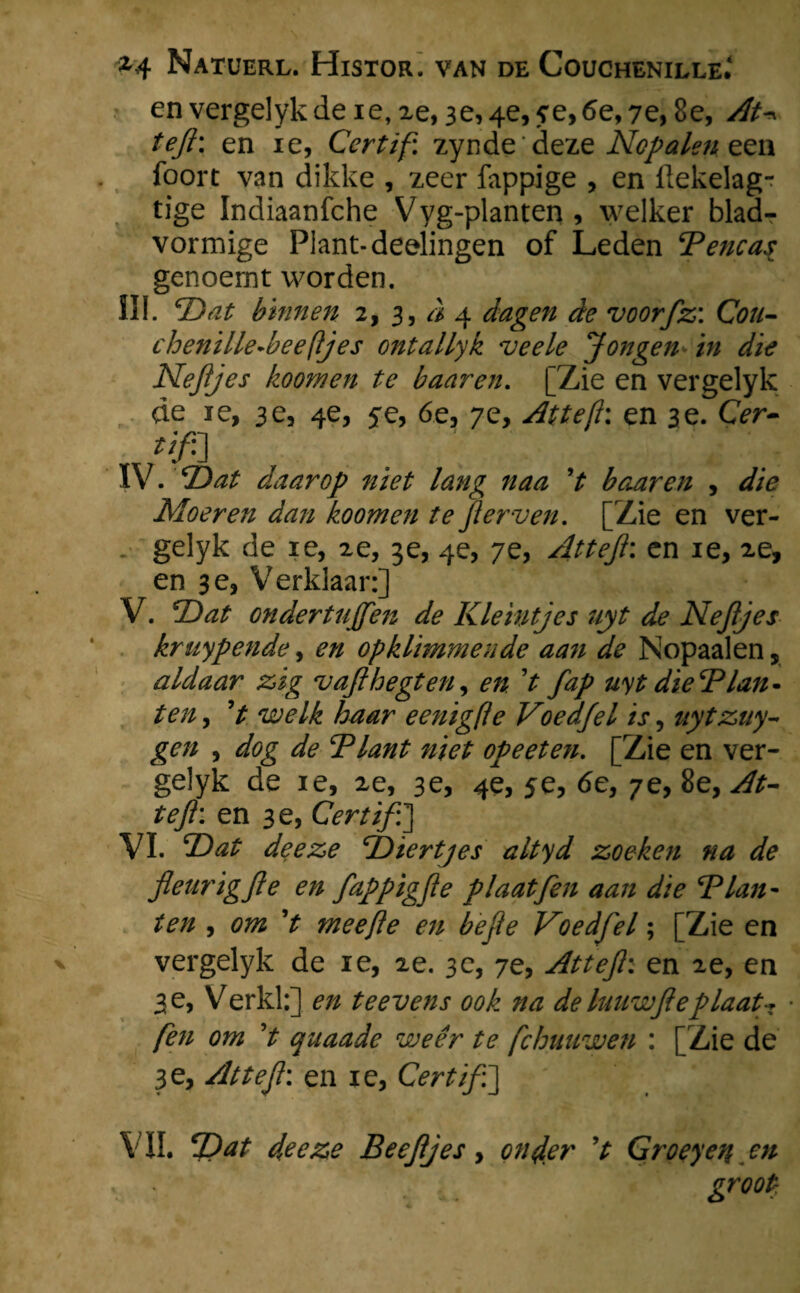 24 NATUERL. HISTOR. VAN DE COUCHENILLE.
en vergelyk de 1e, 2e, 3e, 4e, 5e, 6e, 7e, 8e, At-
teſt: en 1e, Certif: zynde deze Nopalen een
ſoort van dikke , zeer ſappige , en ſtekelag-
tige Indiaanſche Vyg-planten , welker blad-
vormige Plant-deelingen of Leden Pencas
genoemt worden.
III. Dat binnen 2, 3, à 4 dagen de voorſz: Cou-
chenille-beeſtjes ontallyk veele Jongen in die
Neſtjes koomen te baaren. [Zie en vergelyk
de 1e, 3e, 4e, 5e, 6e, 7e, Atteſt: en 3e. Cer-
tif:]
IV. Dat daarop niet lang naa 't baaren , die
Moeren dan koomen te ſterven. [Zie en ver-
gelyk de 1e, 2e, 3e, 4e, 7e, Atteſt: en 1e, 2e,
en 3e, Verklaar:]
V. Dat ondertuſſen de Kleintjes uyt de Neſtjes
kruypende, en opklimmende aan de Nopaalen,
aldaar zig vaſthegten, en 't ſap uyt die Plan-
ten, 't welk haar eenigſte Voedſel is, uytzuy-
gen , dog de Plant niet opeeten. [Zie en ver-
gelyk de 1e, 2e, 3e, 4e, 5e, 6e, 7e, 8e, At-
teſt: en 3e, Certif:]
VI. Dat deeze Diertjes altyd zoeken na de
fleurigſte en ſappigſte plaatſen aan die Plan-
ten , om 't meeſte en beſte Voedſel; [Zie en
vergelyk de 1e, 2e. 3e, 7e, Atteſt: en 2e, en
3e, Verkl:] en teevens ook na de luuwſte plaat-
ſen om 't quaade weêr te ſchuuwen : [Zie de
3e, Atteſt: en 1e, Certif:]
VII. Dat deeze Beeſtjes, onder 't Groeyen en
groot